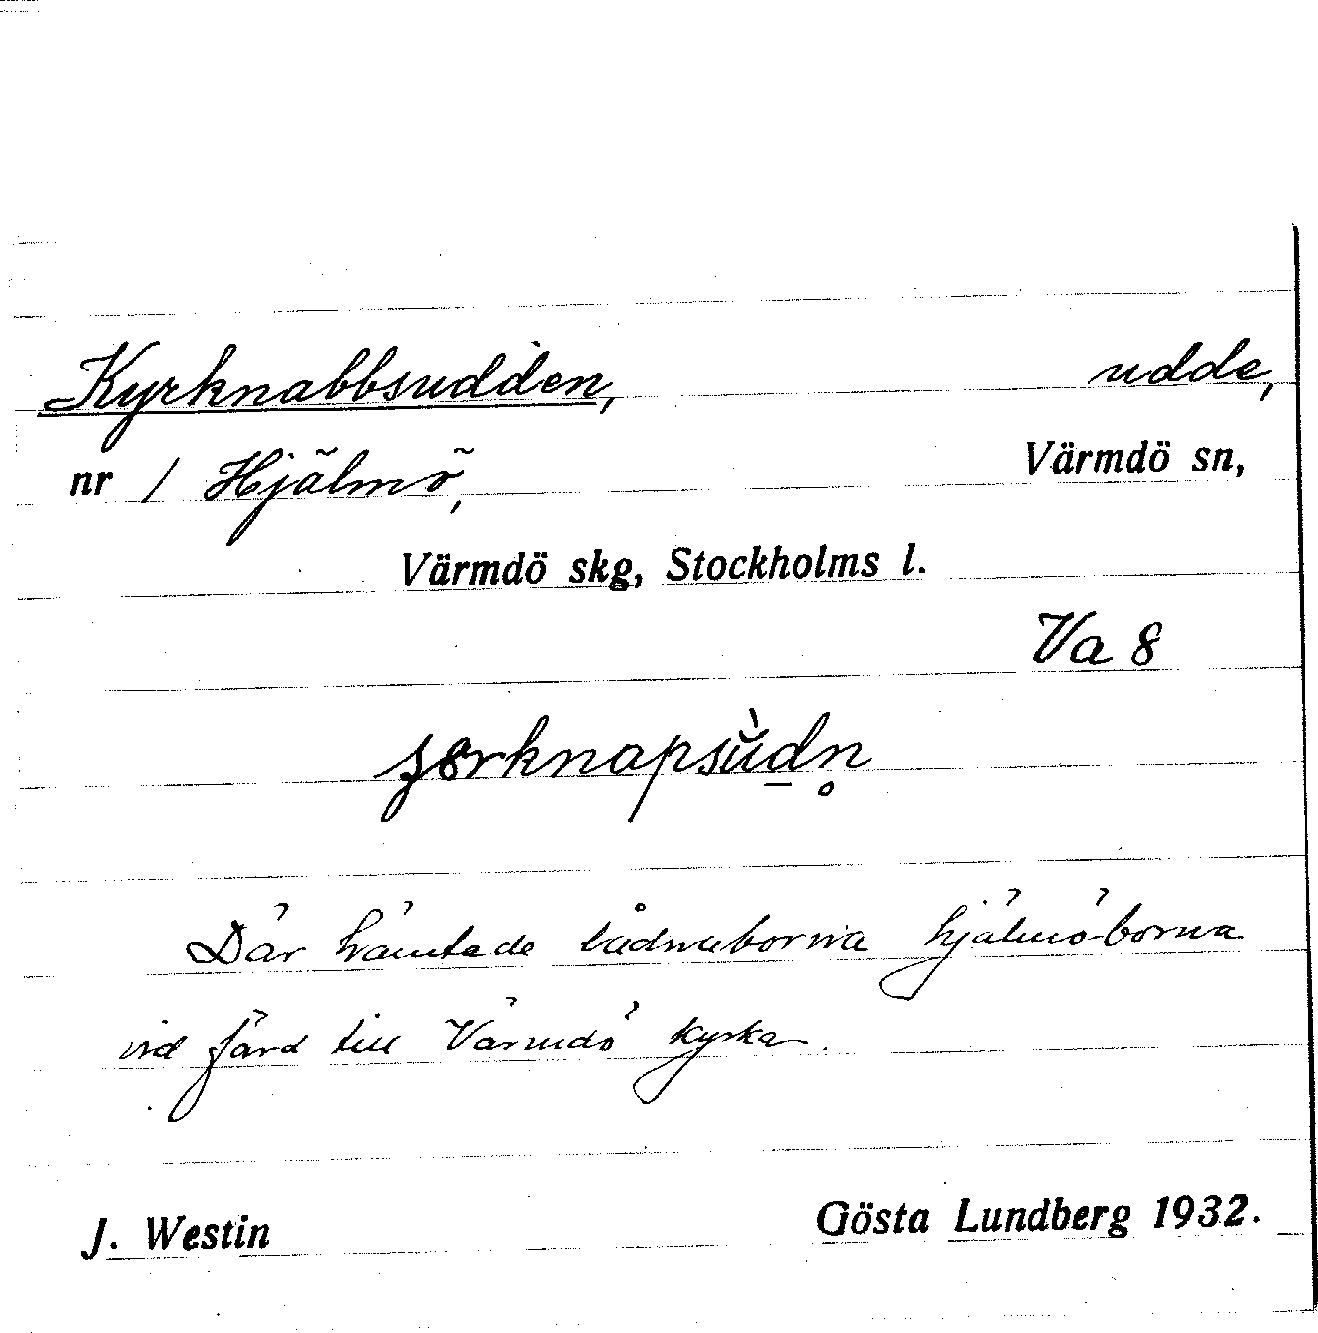 Kyrknabbsudden, udde,
nr 1 Hjälmö, Värmdö sn,
Värmdö skg, Stockholms l.
Va 8
Där hämtade lådnaborna hjälmö-borna
vid färd till Värmdö kyrka.
J. Westin Gösta Lundberg 1932.